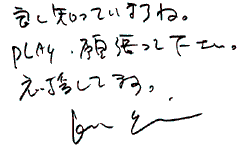 良く知っていますね。
PLAY.頑張って下さい。
応援してます。